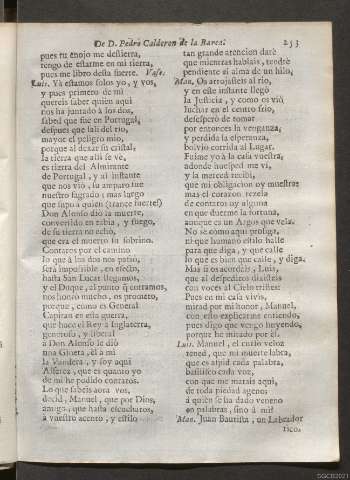 De D. Pedro Calderon de la Barca. 253
pues tu enojo me destierra,
tengo de estarme en mi tierra,
pues me libro desta suerte. Vase.
Luis. Ya estamos solos yo, y vos,
y pues primero de mì
quereis saber quien aqui
nos ha juntado à los dos,
sabed que fue en Portugal,
despues que salì del rio,
mayor el peligro mio,
porque al dexar su cristal,
la tierra que alli se vè,
es tierra del Almirante
de Portugal, y al instante
que nos viò, su amparo fue
nuestro sagrado; mas luego
que supo à quien (trance fuerte!)
Don Alonso diò la muerte,
convertido en rabia, y fuego,
de su tierra no echò,
que era el muerto su sobrino.
Contaros por el camino
lo que à los dos nos passò,
serà impossible, en efecto,
hasta San Lucar llegamos,
y el Duque, al punto q̃ entramos,
nos honrò mucho, os prometo,
porque, como es General
Capitan en esta guerra,
que hace el Rey à Inglaterra,
generoso, y liberal
à Don Alonso le diò
una Gineta, èl à mì
la Vandera, y soy aqui
Alferez, que es quanto yo
de mì he podido contaros.
Lo que sabeis aora vos,
decid, Manuel, que por Dios,
amigo, que hasta escucharos,
à vuestro acento, y estilo
tan grande atencion darè
que mientras hablais, tendrè
pendiente el alma de un hilo,
Man. Os arrojasteis al rio,
y en este instante llegò
la Justicia, y como os viò
luchar en el centro frio,
desesperò de tomar
por entonces la venganza;
y perdida la esperanza,
bolviò corrida al Lugar.
Fuime yo à la casa vuestra,
adonde huesped me vi,
y la merced recibì,
que mi obligacion oy muestra:
mas el corazon rezela
de contaros oy alguna
en que duerme la fortuna,
aunque es un Argos que vela.
No sè como aqui prosiga,
ni que humano estilo halle
para que diga, y que calle
lo que es bien que calle, y diga.
Mas si os acordais, Luis,
que al despediros dixisteis
con voces al Cielo tristes:
Pues en mi casa vivis,
mirad por mi honor, Manuel,
con esto explicarme entiendo,
pues digo que vengo huyendo,
porque he mirado por èl.
Luis. Manuel, el curso veloz
tened, que mi muerte labra,
que es aspid cada palabra,
basilisco cada voz,
con que me matais aqui,
de toda piedad ageno:
à quien se ha dado veneno
en palabras, sino à mì?
Man. Juan Bautista, un Labrador
rico,